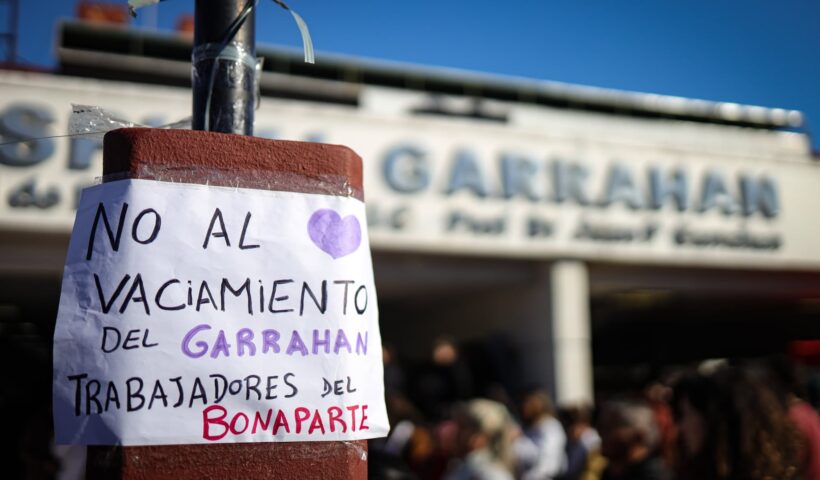 NO AL
VACIAMIENTO
DEL GARRAHAN
TRABAJADORES DEL
BONAPARTE
GARRAHAN
Prof Dr Juan P